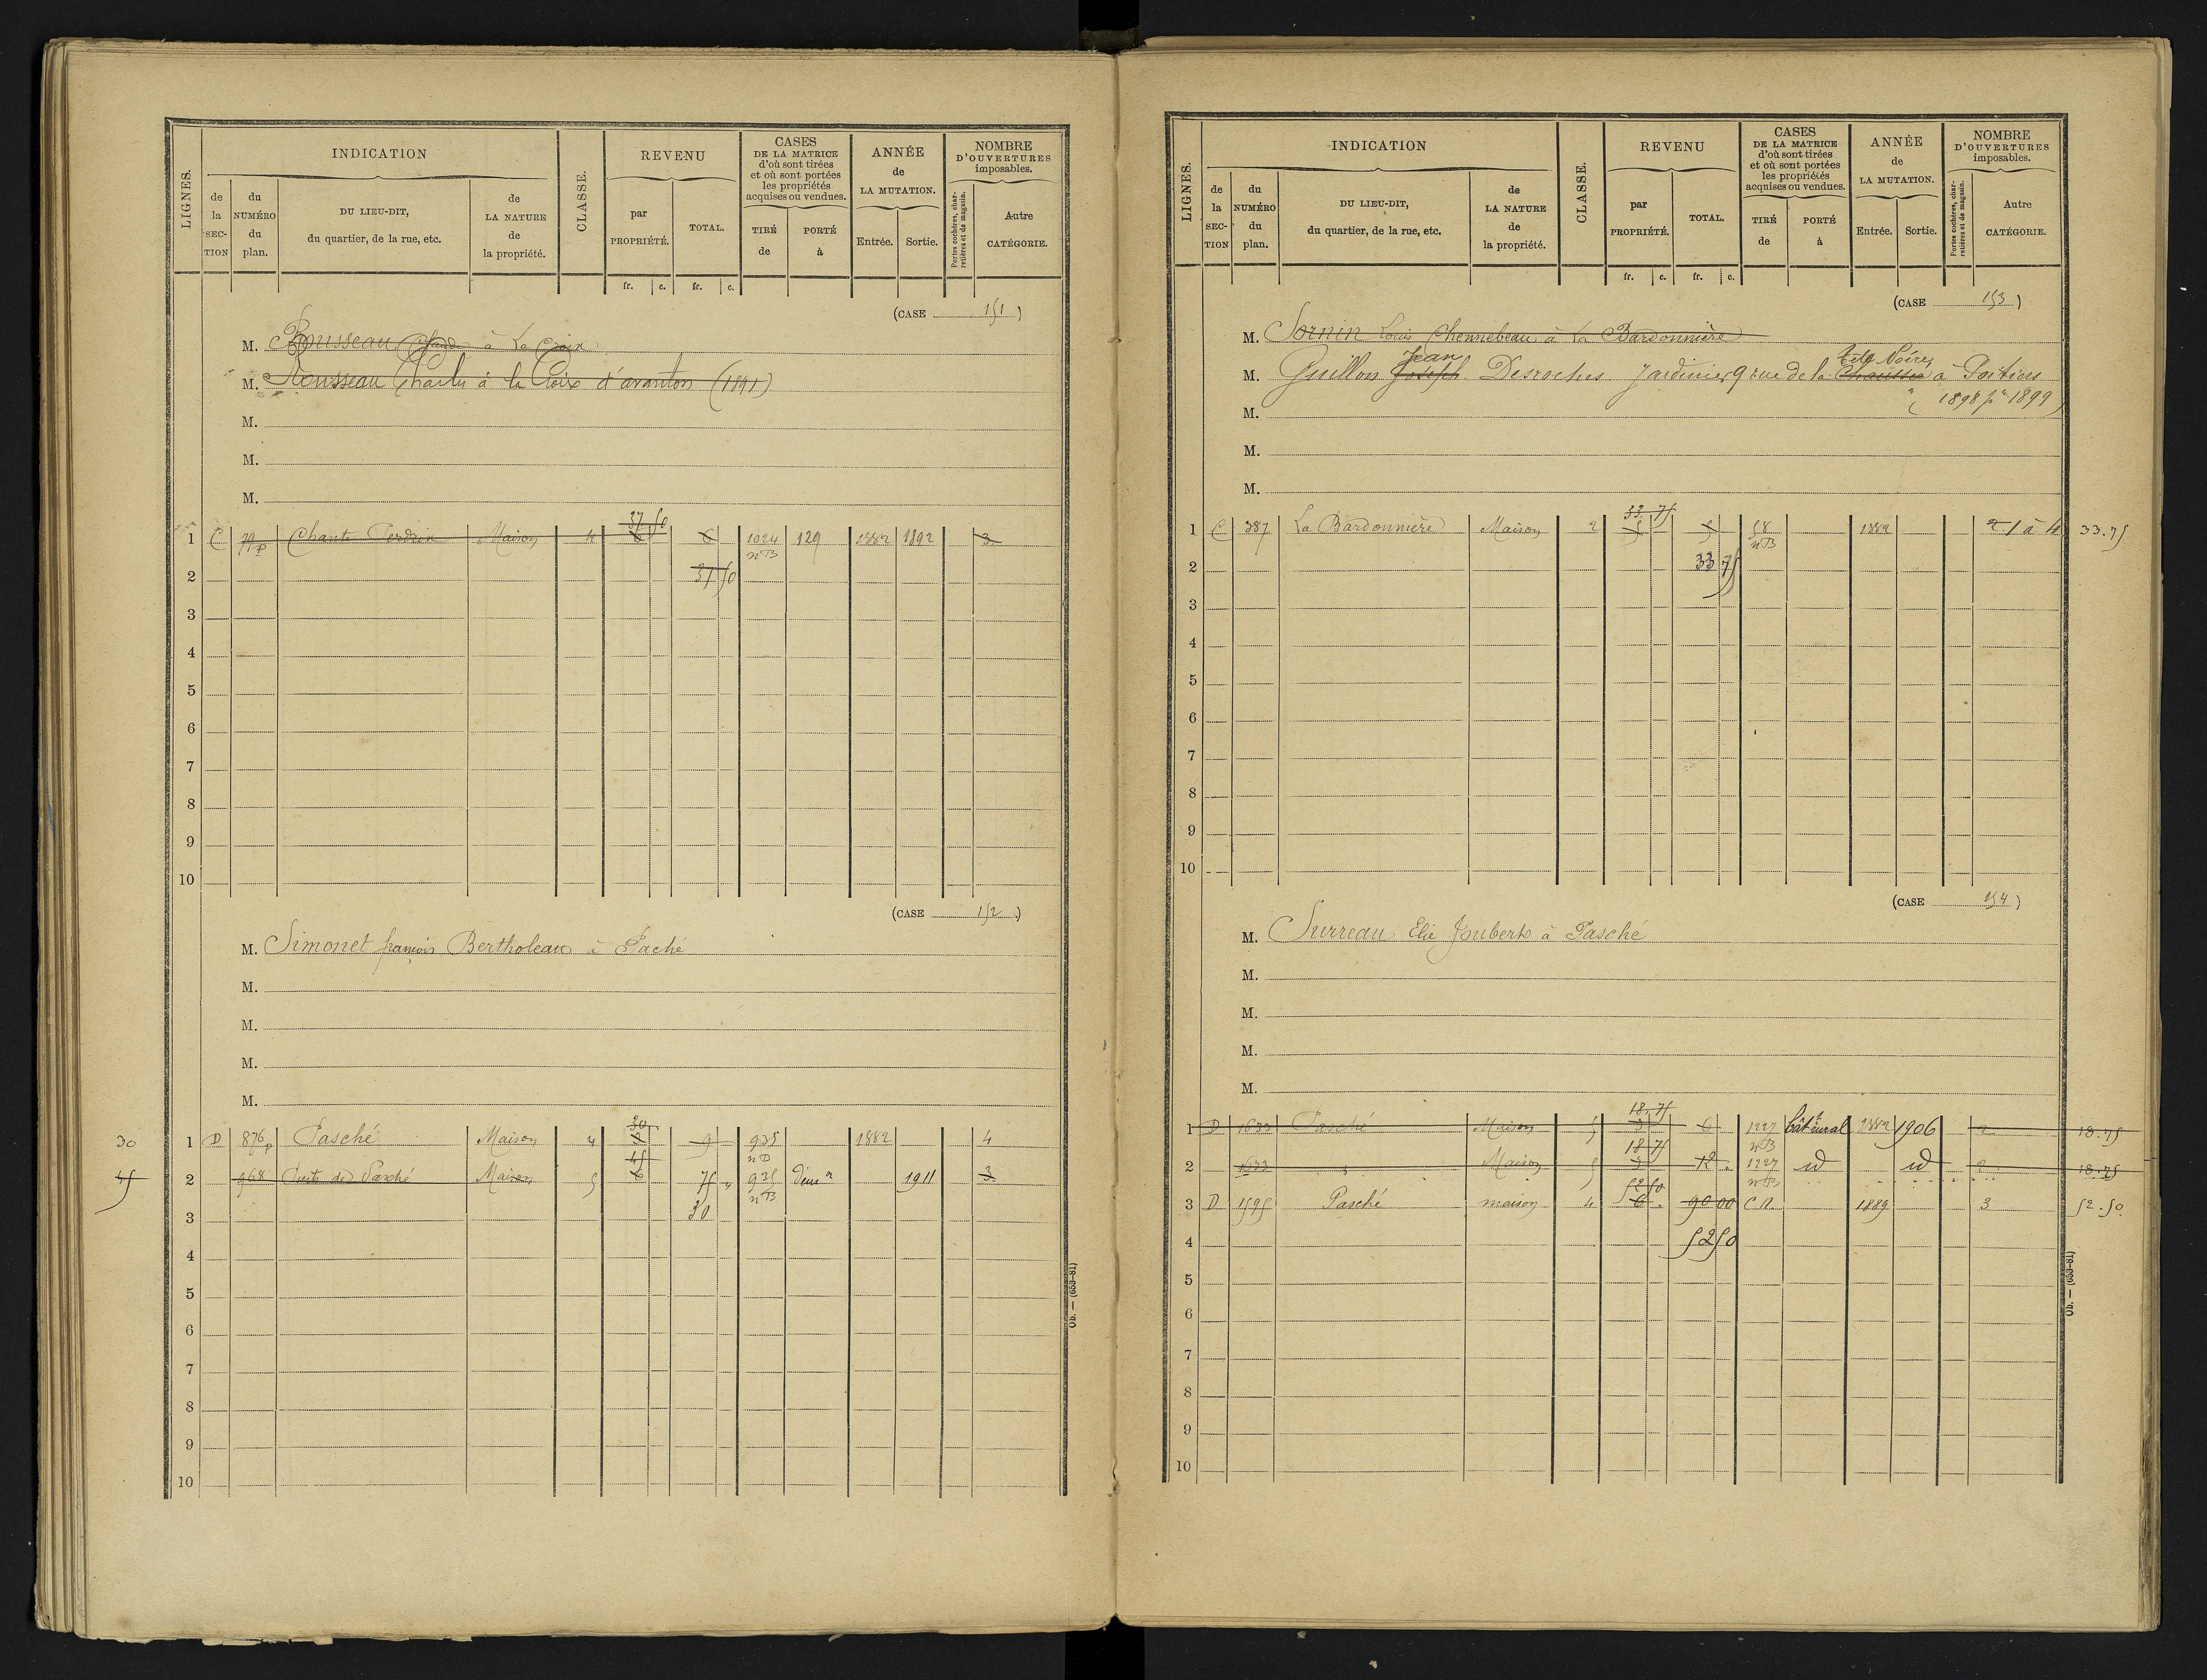 LIGNES.
INDICATION
de la SECTION
du NUMÉRO du plan.
DU LIEU-DIT, du quartier, de la rue, etc.
de LA NATURE de la propriété.
CLASSE.
REVENU
par PROPRIÉTÉ.
TOTAL.
CASES DE LA MATRICE d'où sont tirées et où sont portées les propriétés acquises ou vendues.
TIRÉ de
PORTÉ à
ANNÉE de LA MUTATION.
Entrée.
Sortie.
NOMBRE D'OUVERTURES imposables.
Portes cochères, charretières et de magasin.
Autre CATÉGORIE.
fr. c. fr. c.
(CASE 151)
M. Rousseau Claude à La Croix
M. Rousseau Charles à la Croix d'avanton (1891)
M.
M.
M.
37 50
1 C 79p Chante Perdrix Maison 4 6 6 1024 129 1882 1892 3
nB
2 37 50
3
4
5
6
7
8
9
10
(CASE 152)
M. Simonet françois Bertholeau à Paché
M.
M.
M.
M.
30
30 1 D 876p Pasché Maison 4 9 935 1882 4
45 nD
45 2 968 Puits de Pasché Maison 5 6 75 " 935 1911 3
nB
3 30
4
5
6
7
8
9
10
Ob. — (653-81)
LIGNES.
INDICATION
de la SECTION
du NUMÉRO du plan.
DU LIEU-DIT, du quartier, de la rue, etc.
de LA NATURE de la propriété.
CLASSE.
REVENU
par PROPRIÉTÉ.
TOTAL.
CASES DE LA MATRICE d'où sont tirées et où sont portées les propriétés acquises ou vendues.
TIRÉ de
PORTÉ à
ANNÉE de LA MUTATION.
Entrée.
Sortie.
NOMBRE D'OUVERTURES imposables.
Portes cochères, charretières et de magasin.
Autre CATÉGORIE.
fr. c. fr. c.
(CASE 153)
M. Sornin Louis Chennebeau à La Bardonnière
Jean tête Noire
M. Guillon Joseph Desroches Jardinier 9 rue de la Chaussée à Poitiers
M. (1898 pr 1899)
M.
M.
33.75
1 C 387 La Bardonnière Maison 2 5 5 58 1882 2 1 à 4 33.75
nB
2 33 75
3
4
5
6
7
8
9
10
(CASE 154)
M. Surreau Elie Joubert à Pasché
M.
M.
M.
M.
18.75
1 D 1633 Pasché Maison 5 3 6 1227 bât rural 1882 1906 2 18.75
18 75 nB
2 1633 Maison 5 3 12 1227 id id 2 18.75
52 50 nB
3 D 1595 Pasché maison 4 6 90 00 C.N. 1889 3 52.50
4 52 50
5
6
7
8
9
10
Ob. — (653-81)